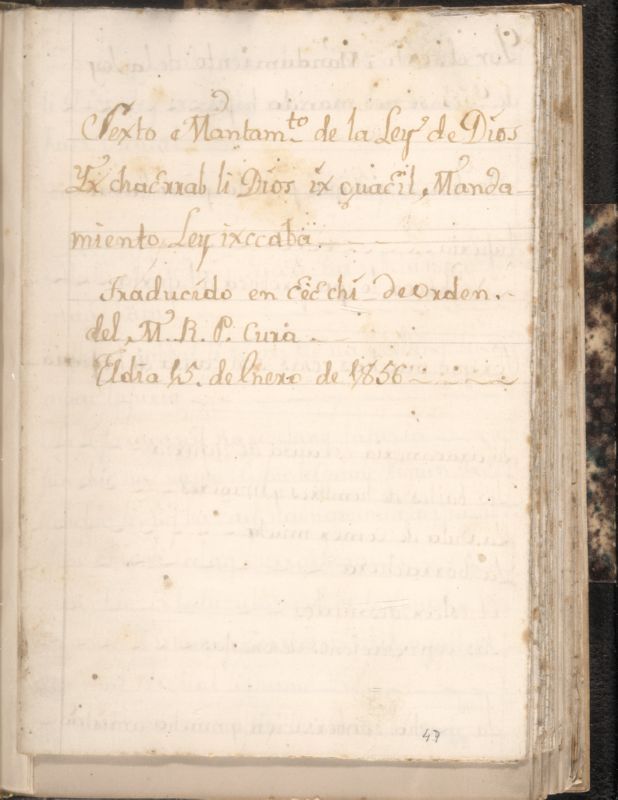 Sexto Mantam.to de la Ley de Dios
Yx chaɛrrab li Dios ix quaɛil, Manda
miento Ley ixccaba
Traducido en ɛeɛchi de orden.
del, M. R. P. Cura.
El dia 15. de Enero de 1856
47